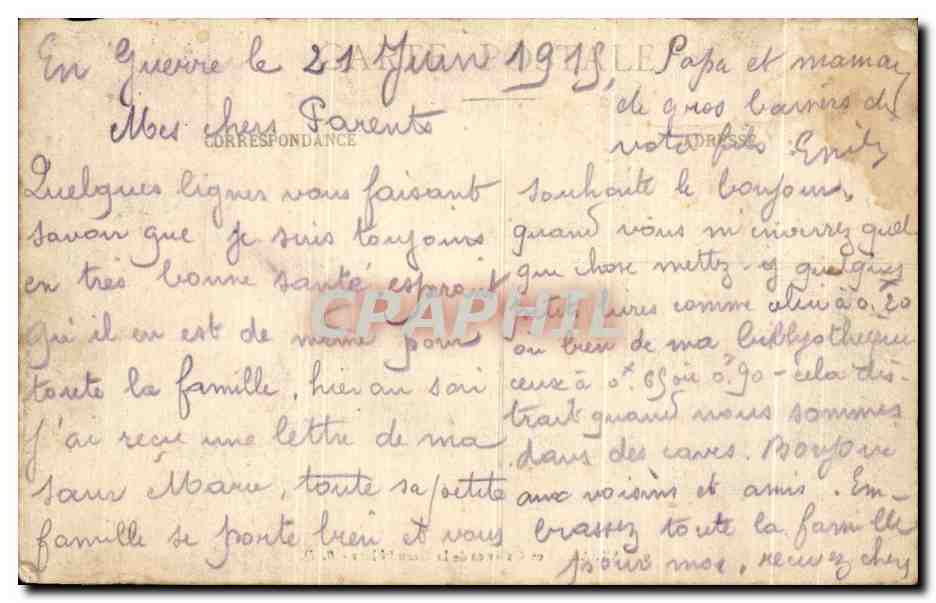 CARTE POSTALE
En Guerre le 21 Juin 1915,
Mes chers Parents
CORRESPONDANCE
Quelques lignes vous faisant
savoir que je suis toujours
en très bonne santé esperant
qu'il en est de même pour
toute la famille, hier au soir
j'ai reçu une lettre de ma
sœur Marie, toute sa petite
famille se porte bien et vous
souhaite le bonjour,
quand vous m'enverrez quel
que chose mettez-y quelques
petits livres comme à 0.20
ou bien de ma bibliyothèque
ceux à 0f. 65 ou 0f.90 - cela dis-
trait quand nous sommes
dans des caves. Bonjour
aux voisins et amis. Em-
brassez toute la famille
pour moi, recevez chers
Papa et maman
de gros baisers de
votre fils Emile
ADRESSE
CPAPHIL